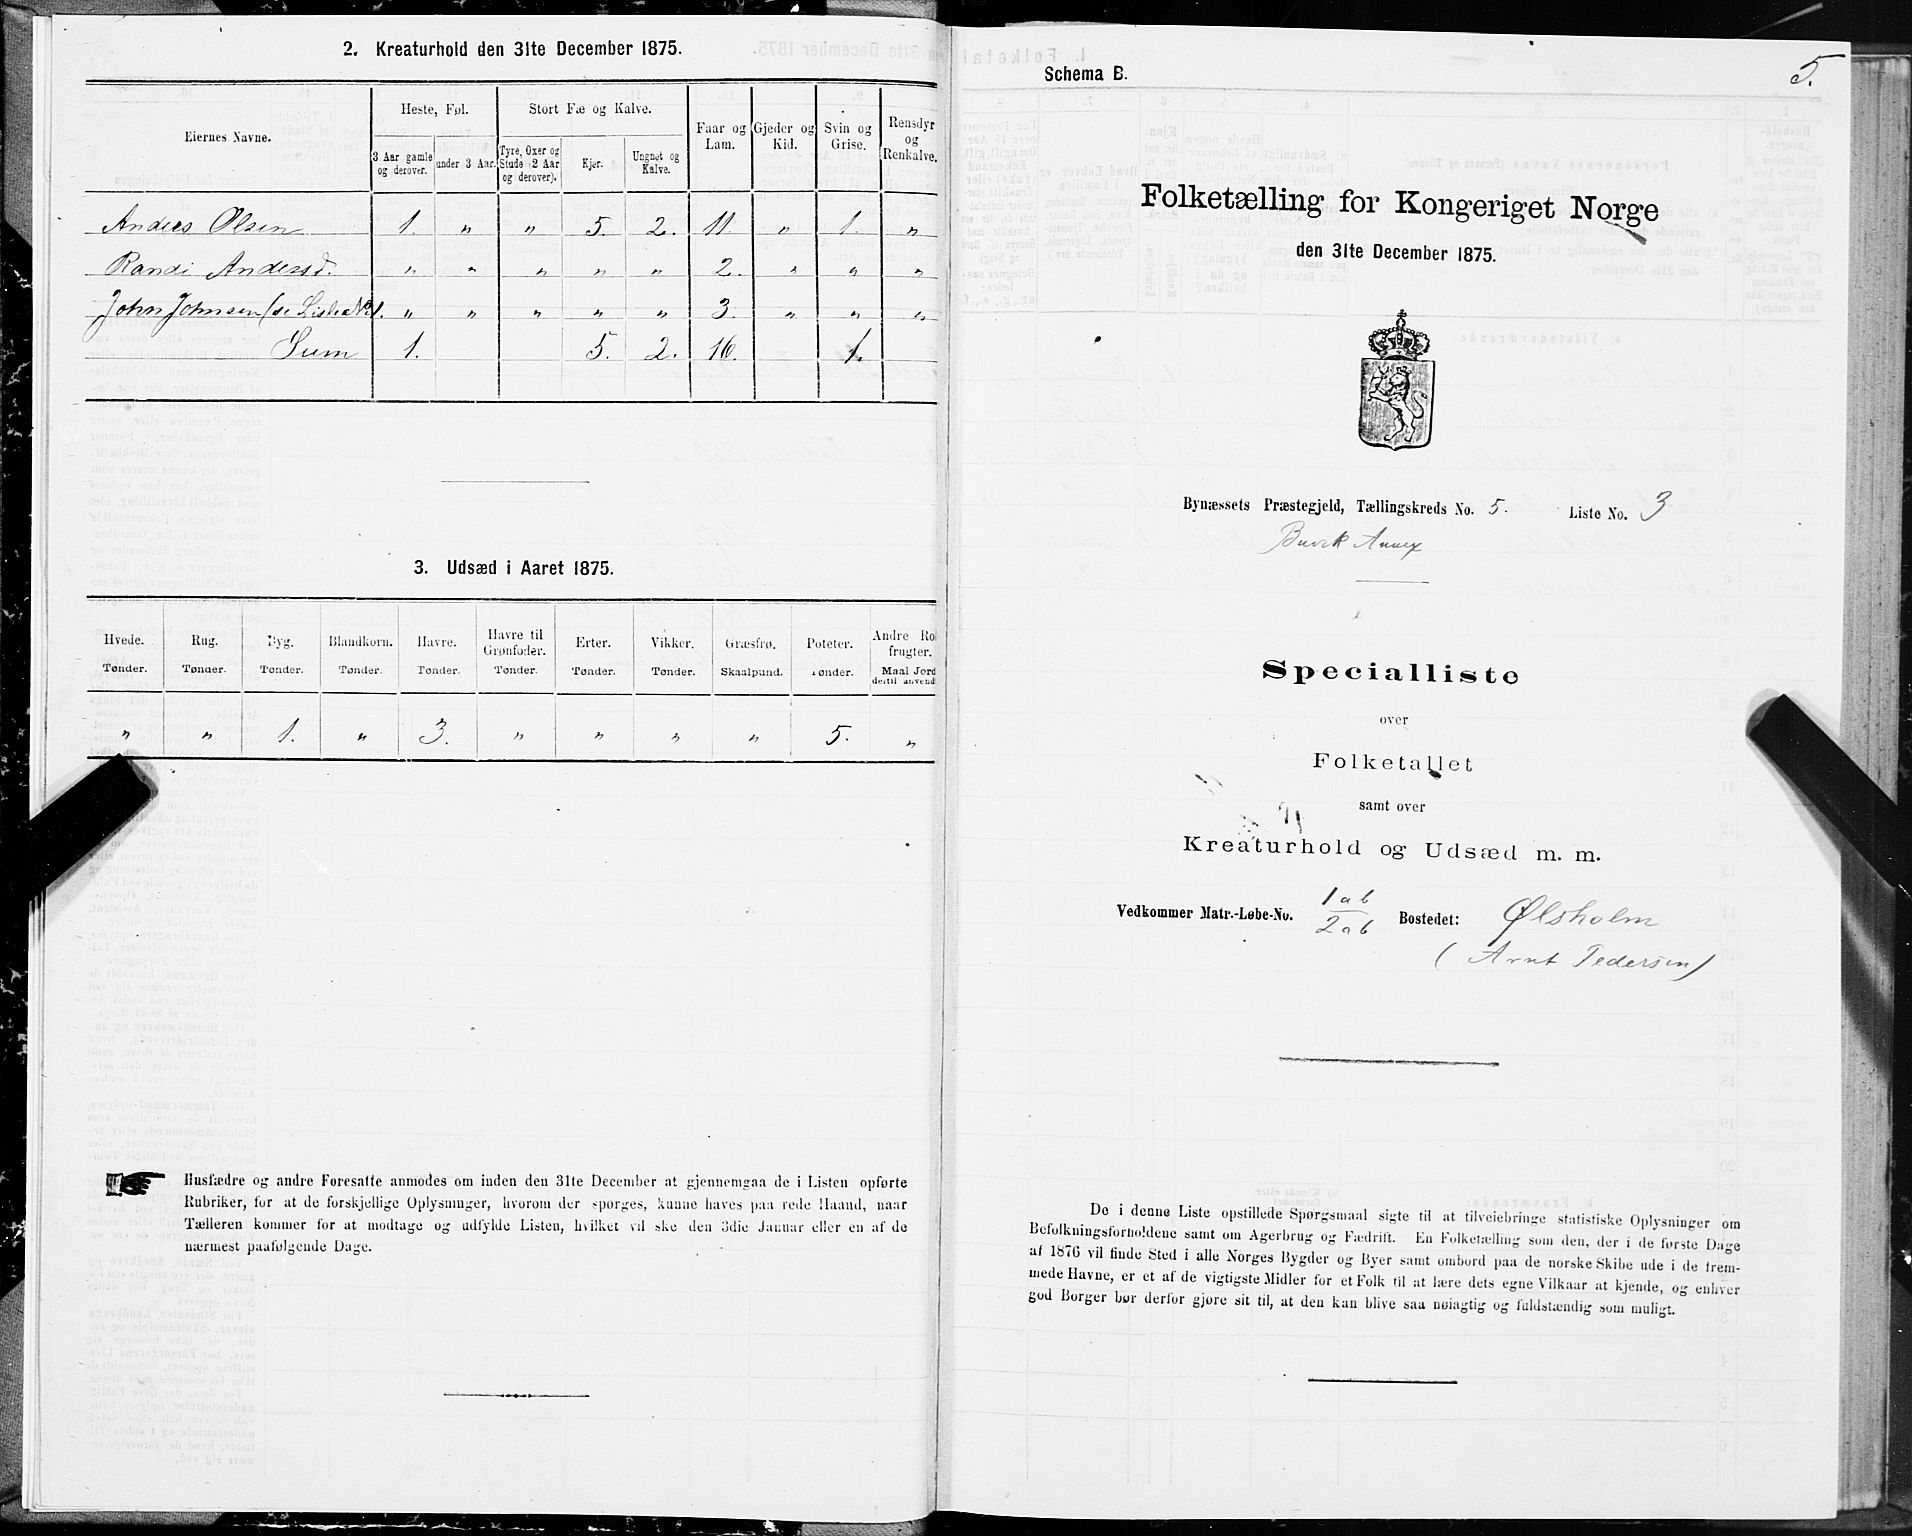 2. Kreaturhold den 31te December 1875.
Eiernes Navne.
Heste, Føl.
Stort Fæ og Kalve.
Faar og Lam.
Gjeder og Kid.
Svin og Grise.
Rensdyr og Renkalve.
3 Aar gamle og derover.
under 3 Aar.
Tyre, Oxer og Stude 2 Aar og derover).
Kjør.
Ungnøt og Kalve.
Anders Olsen 1. " " 5. 2. 11. " 1. "
Randi Andersd. " " " " " 2. " " "
John Johnsen (se Liste No 1. " " " " " 3. " " "
Sum 1. 5. 2. 16. 1.
3. Udsæd i Aaret 1875.
Hvede. Rug. Byg. Blandkorn. Havre. Havre til Grønfoder. Erter. Vikker. Græsfrø. Poteter. Andre Ro frugter.
Tønder. Tønder. Tønder. Tønder. Tønder. Tønder. Tønder. Tønder. Skaalpund. Tønder. Maal Jord dertil anvend
" " 1. " 3. " " " " 5. "
Husfædre og andre Foresatte anmodes om inden den 31te December at gjennemgaa de i Listen opførte
Rubriker, for at de forskjellige Oplysninger, hvorom der spørges, kunne haves paa rede Haand, naar
Tælleren kommer for at modtage og udfylde Listen, hvilket vil ske den 3die Januar eller en af de
nærmest paafølgende Dage.
5.
Schema B.
Folketælling for Kongeriget Norge
den 31te December 1875.
Bynæssets Præstegjeld, Tællingskreds No. 5. Liste No. 3
Buvik Annex
Specialliste
over
Folketallet
samt over
Kreaturhold og Udsæd m. m.
Vedkommer Matr.-Løbe-No. 1ab 2ab Bostedet: Ølsholm
(Arnt Pedersen)
De i denne Liste opstillede Spørgsmaal sigte til at tilveiebringe statistiske Oplysninger om
Befolkningsforholdene samt om Agerbrug og Fædrift. En Folketælling som den, der i de første Dage
af 1876 vil finde Sted i alle Norges Bygder og Byer samt ombord paa de norske Skibe ude i de frem-
mede Havne, er et af de vigtigste Midler for et Folk til at lære dets egne Vilkaar at kjende, og enhver
god Borger bør derfor gjøre sit til, at den kan blive saa nøiagtig og fuldstændig som muligt.